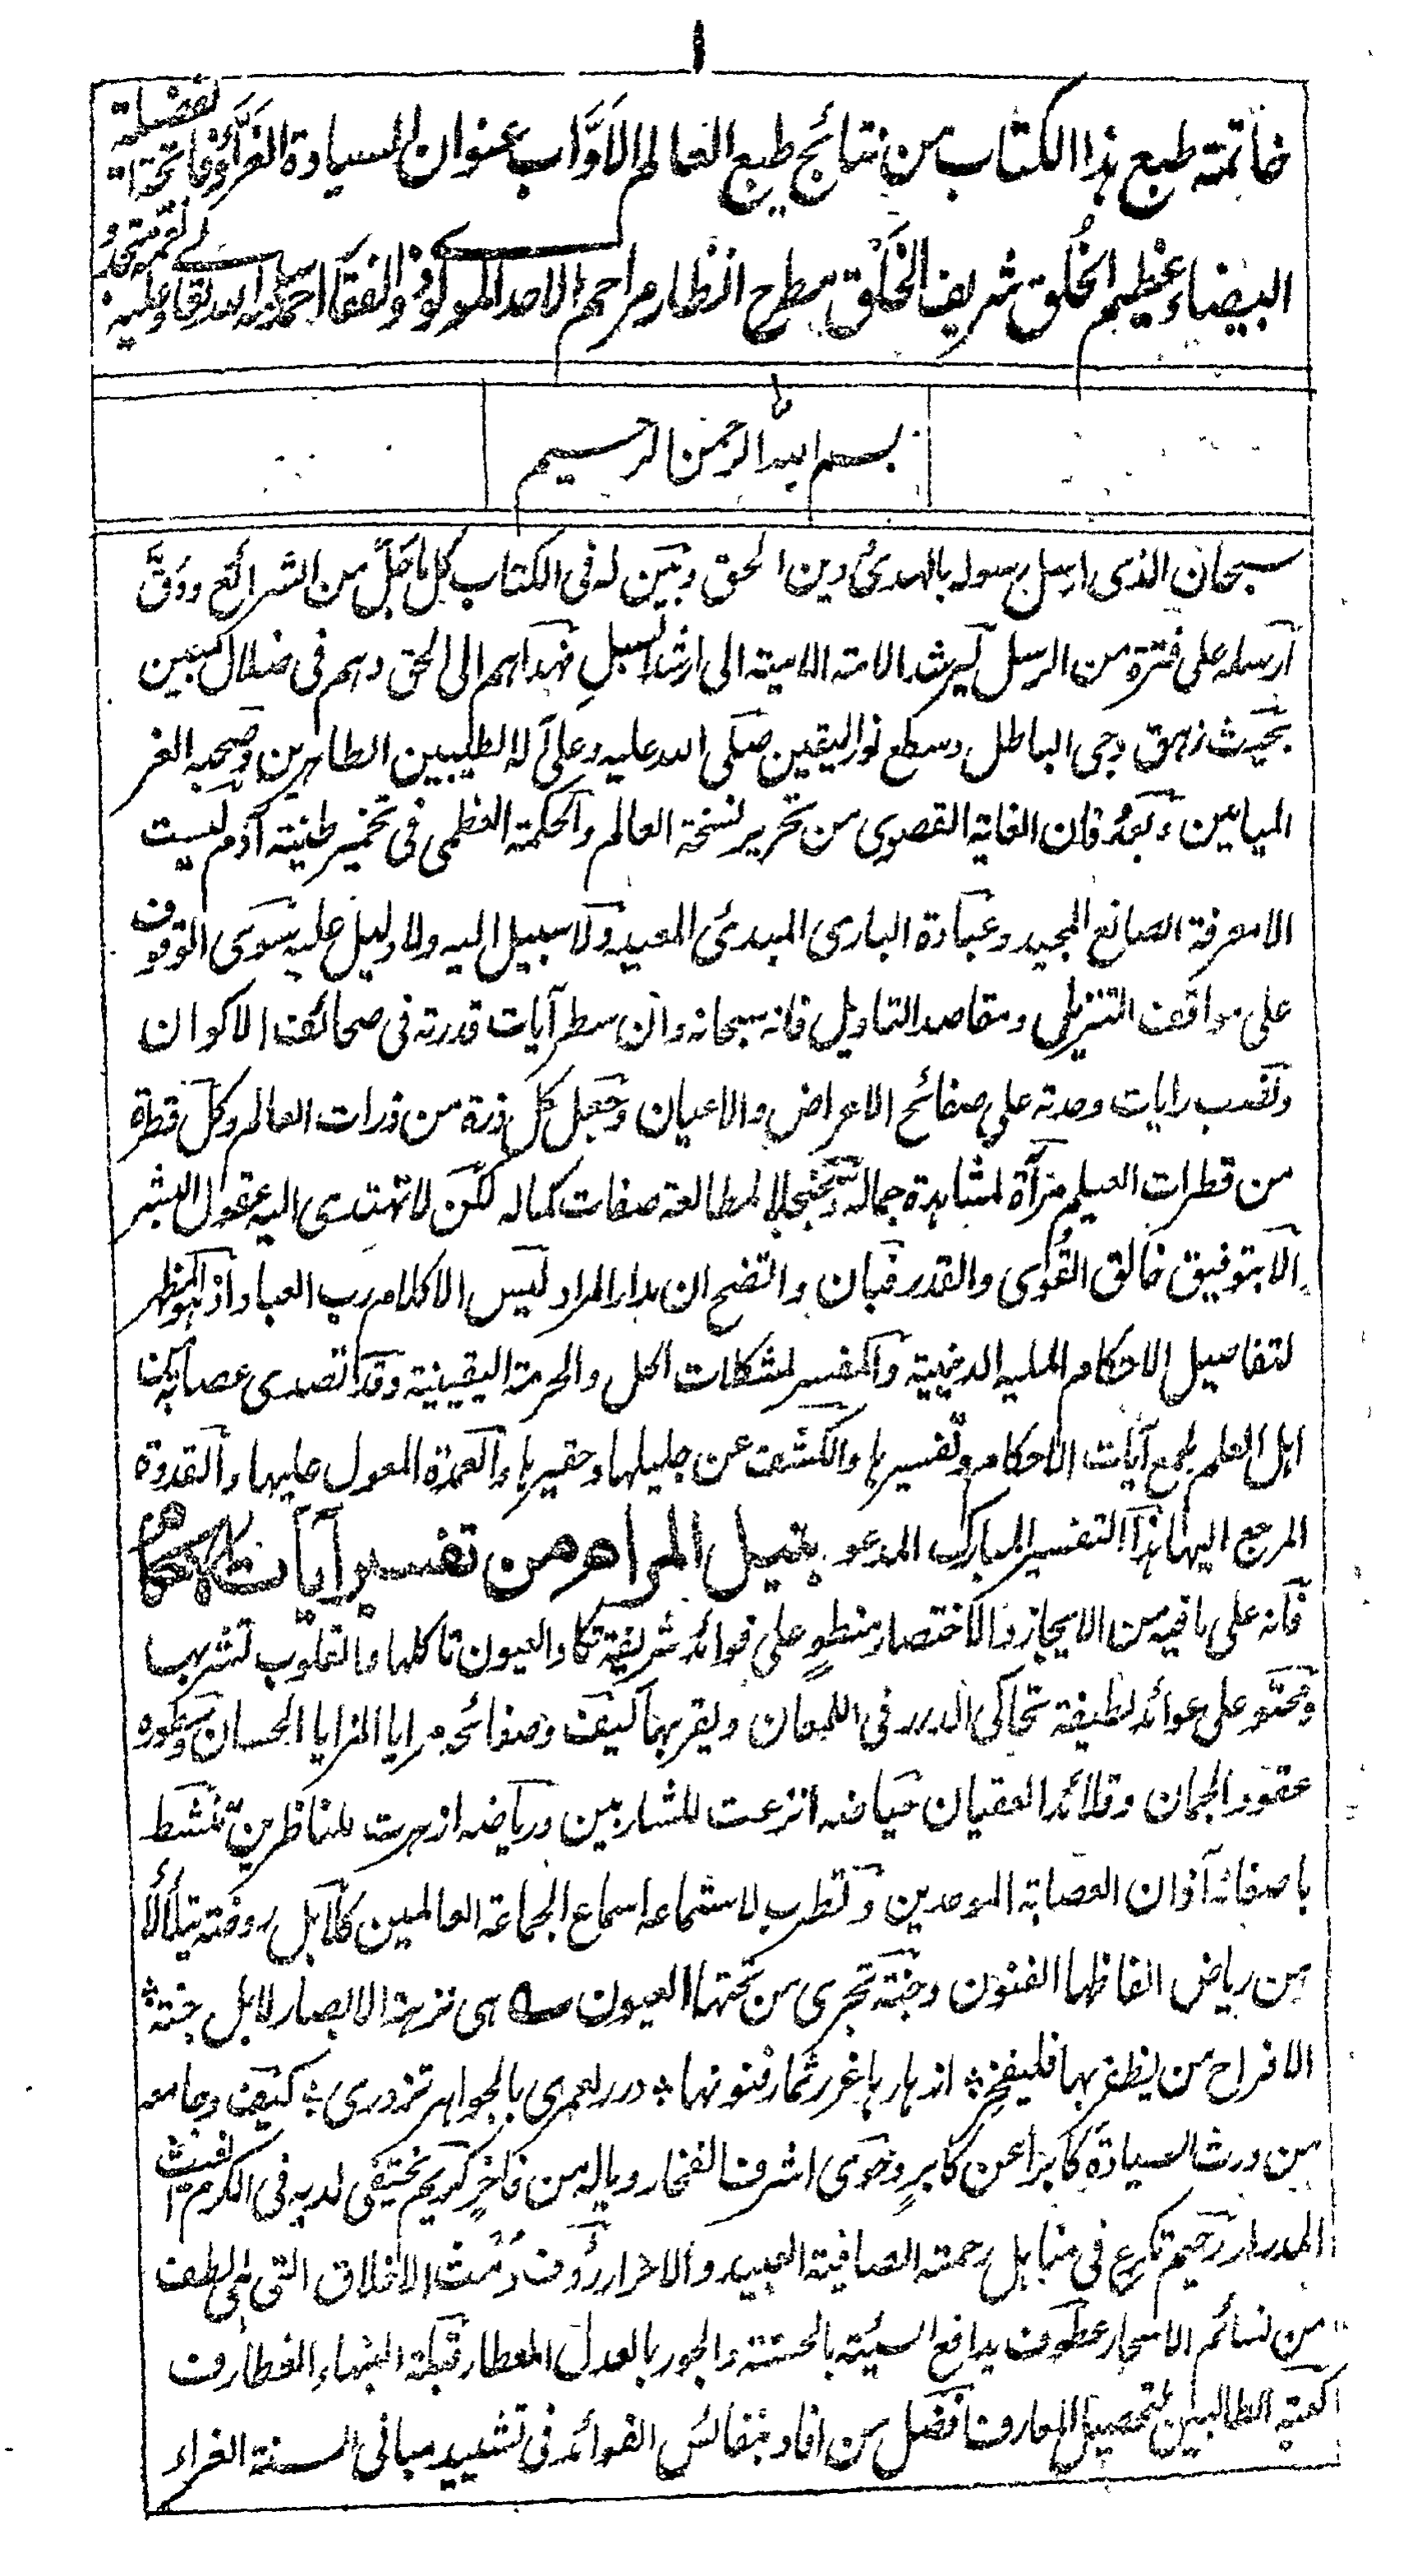 ١
خاتمة طبع هذا الكتاب من نتائج طبع العالم الأوّاب عنوان السيادة الغرّاء وفاتحة الفضيلة
البيضاء عظيم الخُلق شريف الخَلْق مطرح انظار مراحم الاحد المولوي ذوالفقار احمد سلمه الله تعالى
بسم الله الرحمن الرحيم
سبحان الذى ارسل رسوله بالهدى ودين الحق وبين له فى الكتاب كل ما جلّ من الشرائع ودقّ
ارسله على فترة من الرسل ليرشد الامة الامية الى ارشد السبل فهداهم الى الحق وهم فى ضلال مبين
بحيث زهق دجى الباطل وسطع نور اليقين صلى الله عليه وعلى آله الطيبين الطاهرين وصحبه الغر
الميامين وبعد فان الغاية القصوى من تحرير نسخة العالم والحكمة العظمى فى تخمير طينة آدم ليست
الا معرفة الصانع المجيد وعبادة البارى المبدئ المعيد ولا سبيل اليه ولا دليل عليه سوى الوقوف
على مواقف التنزيل ومقاصد التاويل فانه سبحانه وان سطر آيات قدرته فى صحائف الاكوان
ونصب رايات وحدته على صفائح الاعراض والاعيان وجعل كل ذرة من ذرات العالم وكل قطرة
من قطرات العيلم مرآة لمشاهدة جماله وسجنجلا لمطالعة صفات كماله لكن لا تهتدى اليه عقول البشر
الا بتوفيق خالق القُوٰى والقدر فبان واتضح ان مدار المراد ليس الا كلام رب العباد اذ هو المظهر
لتفاصيل الاحكام الملية الدينية والمفسر لمشكلات الحل والحرمة اليقينية وقد تصدى عصابة من
اهل العلم لجمع آيات الاحكام وتفسيرها والكشف عن جليلها وحقيرها والعمدة المعول عليها والقدوة
المرجع اليها هذا التفسير المبارك المدعو بنيل المرام من تفسير آيات الاحكام
فانه على ما فيه من الايجاز والاختصار منطوٍ على فوائد شريفة تكاد العيون تاكلها والقلوب تشربها
ومحتو على عوائد لطيفة تحاكى الدرر فى اللمعان ويقربها كيف وصفائحه مرايا المزايا الحسان وسطوره
عقود الجمان وقلائد العقيان حياضه اترعت للشاربين ورياضه ازهرت للناظرين تنشط
باصغائه آذان العصابة الموحدين وتطرب لاستماعه اسماع الجماعة العالمين كلا بل روضة يتلألأ
من رياض الفاظها الفنون وجنة تجرى من تحتها العيون هى نزهة الابصار لا بل جنة
الافراح من يظفر بها فليفخر ازهارها غرر ثمار فنونها درر لعمرى بالجواهر تزدرى كيف وجامعه
من ورث السيادة كابرًا عن كابرٍ وحوى اشرف الفخار وياله من فاخرٍ كريم يختفى لديه فى الكرم الغيث
المدرار رحيم تكرع فى مناهل رحمته الصافية العبيد والاحرار رؤوف دُمُث الاخلاق التى هى الطف
من نسائم الاسحار عطوف يدافع السيئة بالحسنة والجور بالعدل المعطار قبلة النبهاء الغطارف
كعبة الطالبين لتحصيل المعارف افضل من افاد بنفائس الفوائد فى تشييد مبانى السنة الغراء